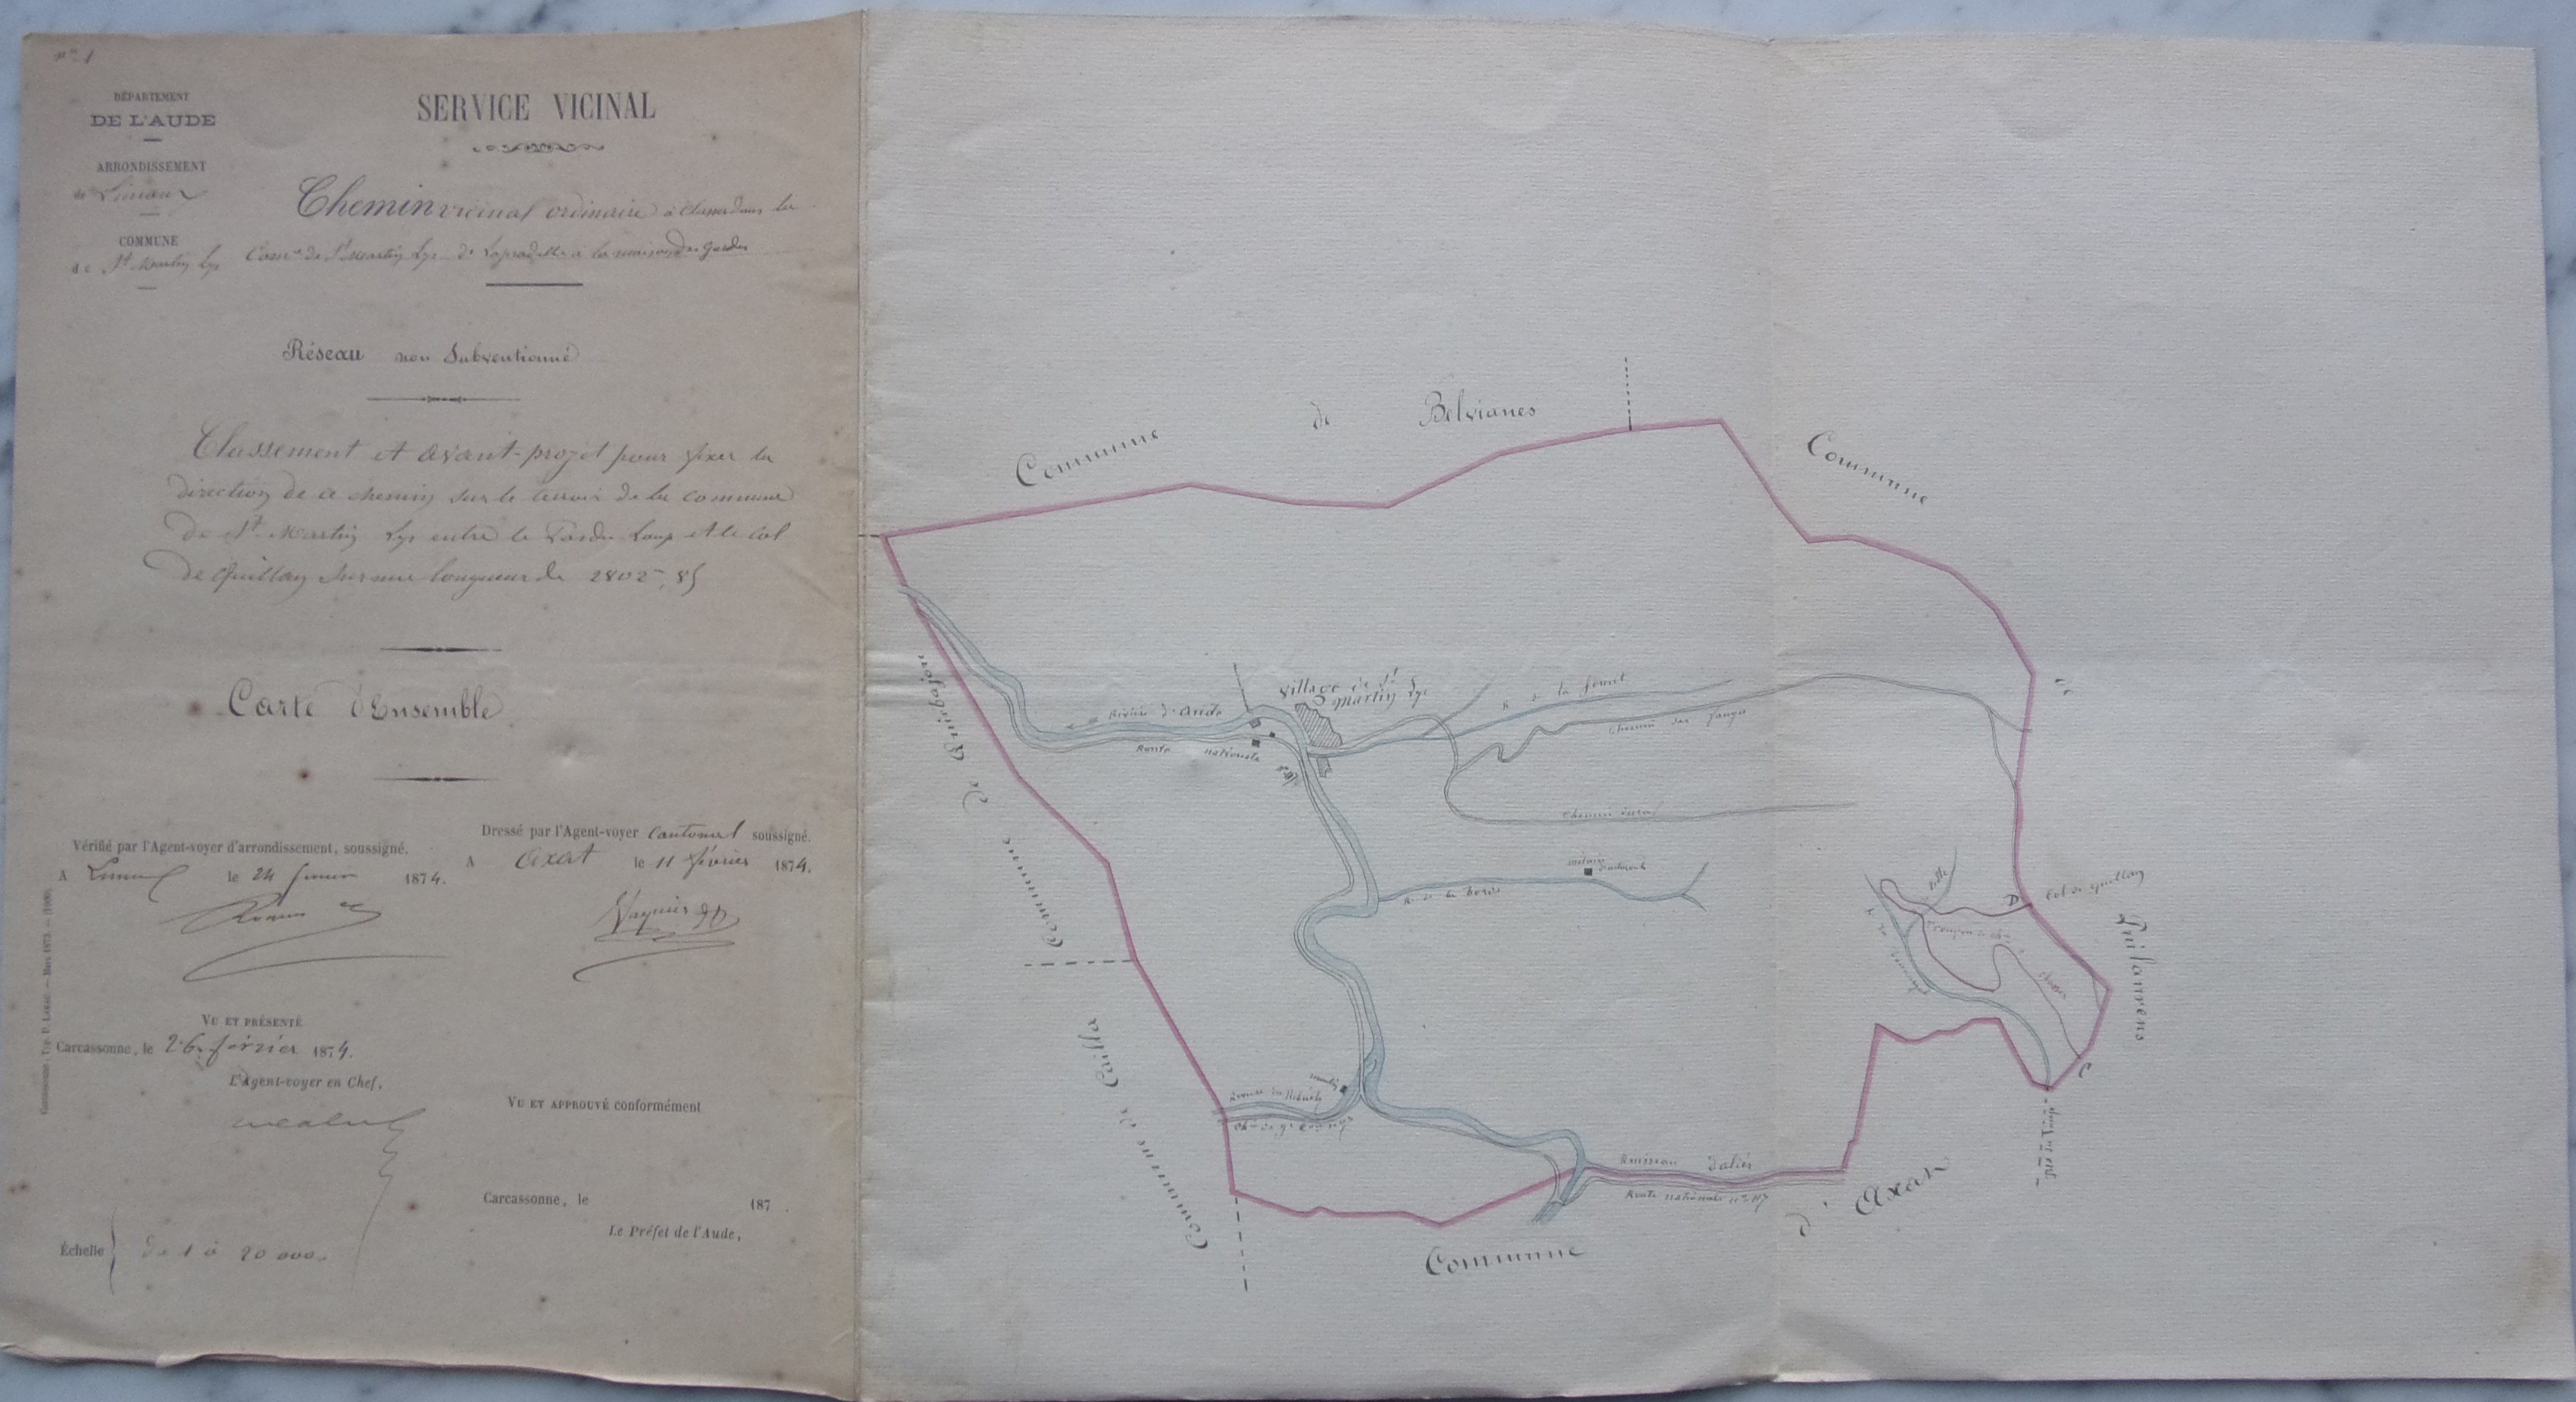 n° 1
DÉPARTEMENT
DE L'AUDE
ARRONDISSEMENT
de Limoux
COMMUNE
de St Martin Lys
SERVICE VICINAL
Chemin vicinal ordinaire à classer dans la
Comne de St Martin Lys de Lapradelle à la maison des gardes
Réseau non Subventionné
Classement et avant-projet pour fixer la
direction de ce chemin sur le terroir de la commune
de St Martin Lys entre le Pas du Loup et le Col
de Quillan sur une longueur de 2802m,85
Carte d'Ensemble
Vérifié par l'Agent-voyer d'arrondissement, soussigné.
A Limoux le 24 février 1874.
Dressé par l'Agent-voyer Cantonal soussigné.
A Axat le 11 février 1874.
VU ET PRÉSENTÉ
Carcassonne, le 26 février 1874.
L'Agent-voyer en Chef,
VU ET APPROUVÉ conformément
Carcassonne, le 187 .
Le Préfet de l'Aude,
Échelle de 1 à 20 000.
Commune de Belvianes
Commune
de
Puilaurens
Commune de Quirbajou
Commune de Cailla
Commune d'Axat
Village de St Martin Lys
Rivière d'Aude
Route nationale
R. de la forêt
Chemin des Fanges
Chemin rural
R. de la borde
métairie
Col de Quillan
Tronçon de chin à classer
C
Pas du Loup
moulin
Ruisseau d'aliès
Route nationale n° 117